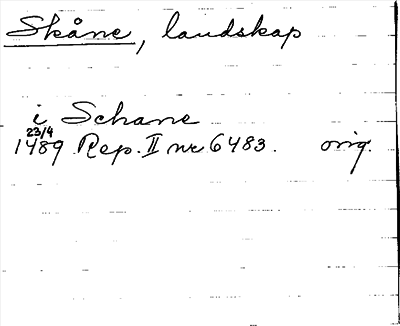 Skåne, landskap
i Schane
23/4
1489. Rep. II nr 6483. orig.